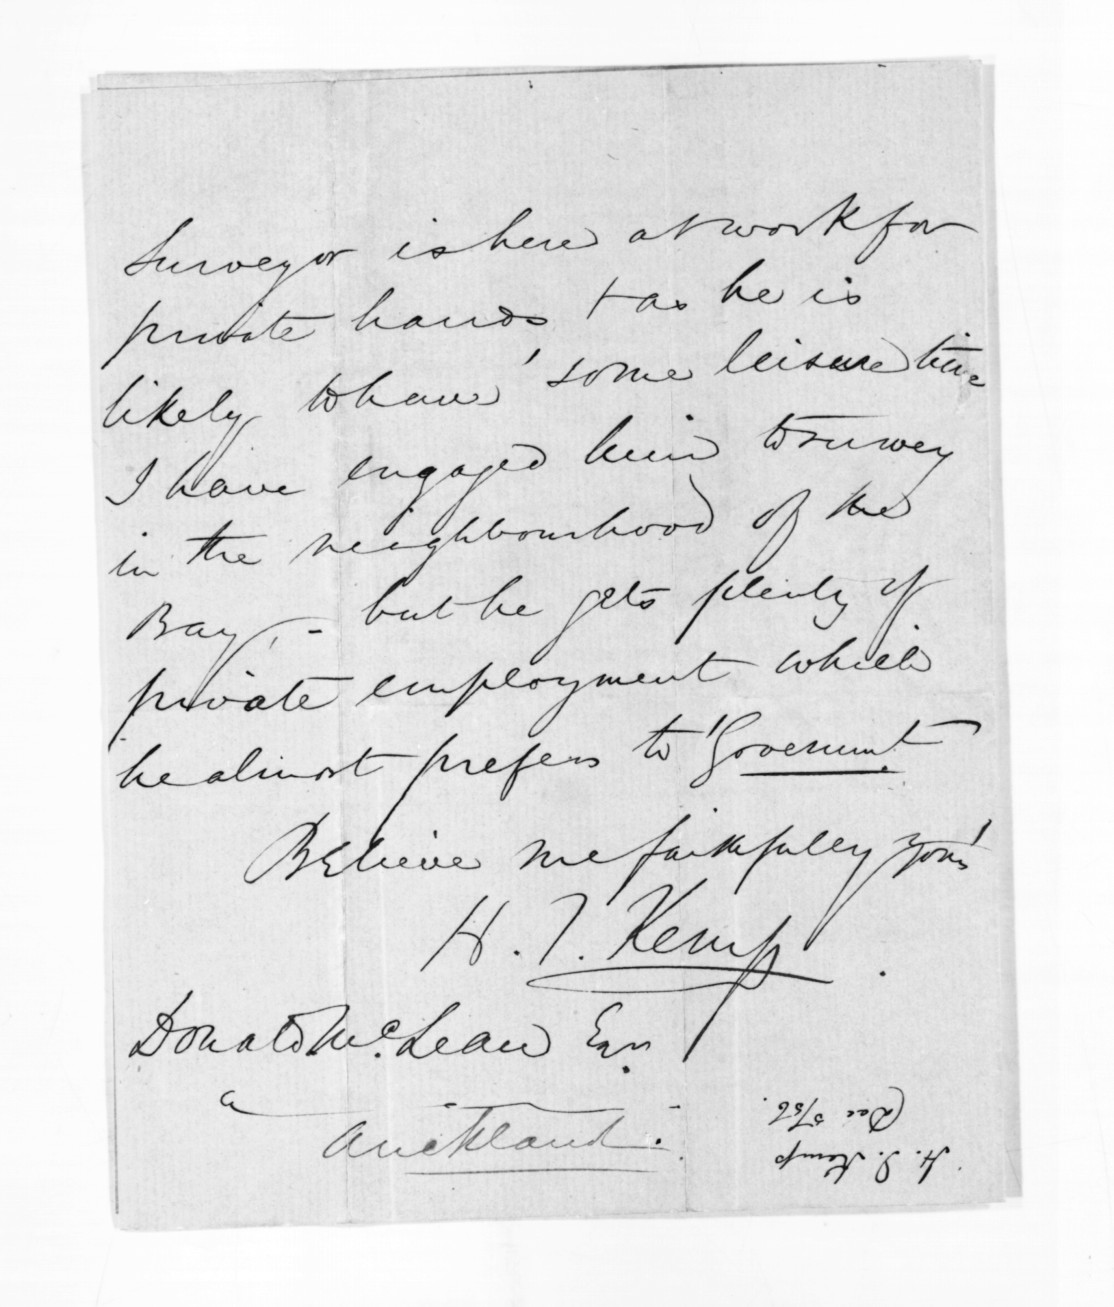 Surveyor is here at work for
private hands + as he is
likely to have some leisure time
I have engaged him to survey
in the neighbourhood of the
Bay, - but he gets plenty of
private employment which
he almost prefers to Governmt.
Believe me faithfully yours
H. T. Kemp.
Donald McLean Esqr.
Auckland.
H. T. Kemp
Dec 5/56.